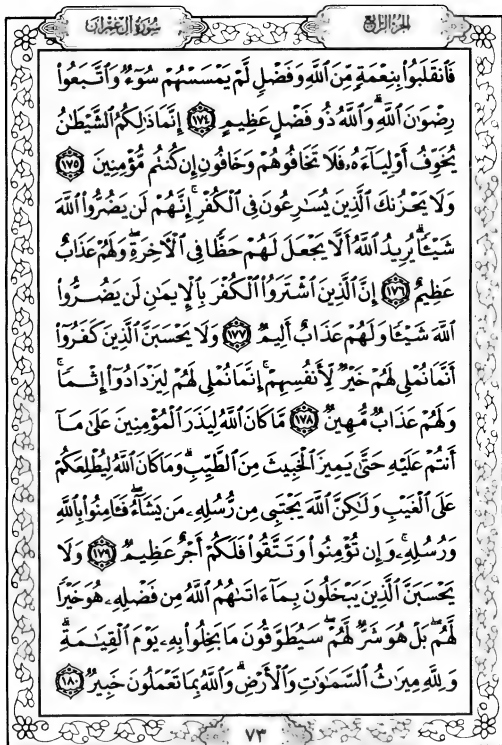 الجزء الرابع
سورة آل عمران
فَٱنقَلَبُوا۟ بِنِعْمَةٍ مِّنَ ٱللَّهِ وَفَضْلٍ لَّمْ يَمْسَسْهُمْ سُوٓءٌ وَٱتَّبَعُوا۟
رِضْوَٰنَ ٱللَّهِ ۗ وَٱللَّهُ ذُو فَضْلٍ عَظِيمٍ ١٧٤ إِنَّمَا ذَٰلِكُمُ ٱلشَّيْطَٰنُ
يُخَوِّفُ أَوْلِيَآءَهُۥ فَلَا تَخَافُوهُمْ وَخَافُونِ إِن كُنتُم مُّؤْمِنِينَ ١٧٥
وَلَا يَحْزُنكَ ٱلَّذِينَ يُسَٰرِعُونَ فِى ٱلْكُفْرِ ۚ إِنَّهُمْ لَن يَضُرُّوا۟ ٱللَّهَ
شَيْـًٔا ۗ يُرِيدُ ٱللَّهُ أَلَّا يَجْعَلَ لَهُمْ حَظًّا فِى ٱلْءَاخِرَةِ ۖ وَلَهُمْ عَذَابٌ
عَظِيمٌ ١٧٦ إِنَّ ٱلَّذِينَ ٱشْتَرَوُا۟ ٱلْكُفْرَ بِٱلْإِيمَٰنِ لَن يَضُرُّوا۟
ٱللَّهَ شَيْـًٔا وَلَهُمْ عَذَابٌ أَلِيمٌ ١٧٧ وَلَا يَحْسَبَنَّ ٱلَّذِينَ كَفَرُوٓا۟
أَنَّمَا نُمْلِى لَهُمْ خَيْرٌ لِّأَنفُسِهِمْ ۚ إِنَّمَا نُمْلِى لَهُمْ لِيَزْدَادُوٓا۟ إِثْمًا ۚ
وَلَهُمْ عَذَابٌ مُّهِينٌ ١٧٨ مَّا كَانَ ٱللَّهُ لِيَذَرَ ٱلْمُؤْمِنِينَ عَلَىٰ مَآ
أَنتُمْ عَلَيْهِ حَتَّىٰ يَمِيزَ ٱلْخَبِيثَ مِنَ ٱلطَّيِّبِ ۗ وَمَا كَانَ ٱللَّهُ لِيُطْلِعَكُمْ
عَلَى ٱلْغَيْبِ وَلَٰكِنَّ ٱللَّهَ يَجْتَبِى مِن رُّسُلِهِۦ مَن يَشَآءُ ۖ فَـَٔامِنُوا۟ بِٱللَّهِ
وَرُسُلِهِۦ ۚ وَإِن تُؤْمِنُوا۟ وَتَتَّقُوا۟ فَلَكُمْ أَجْرٌ عَظِيمٌ ١٧٩ وَلَا
يَحْسَبَنَّ ٱلَّذِينَ يَبْخَلُونَ بِمَآ ءَاتَىٰهُمُ ٱللَّهُ مِن فَضْلِهِۦ هُوَ خَيْرًا
لَّهُم ۖ بَلْ هُوَ شَرٌّ لَّهُمْ ۖ سَيُطَوَّقُونَ مَا بَخِلُوا۟ بِهِۦ يَوْمَ ٱلْقِيَٰمَةِ ۗ
وَلِلَّهِ مِيرَٰثُ ٱلسَّمَٰوَٰتِ وَٱلْأَرْضِ ۗ وَٱللَّهُ بِمَا تَعْمَلُونَ خَبِيرٌ ١٨٠
٧٣